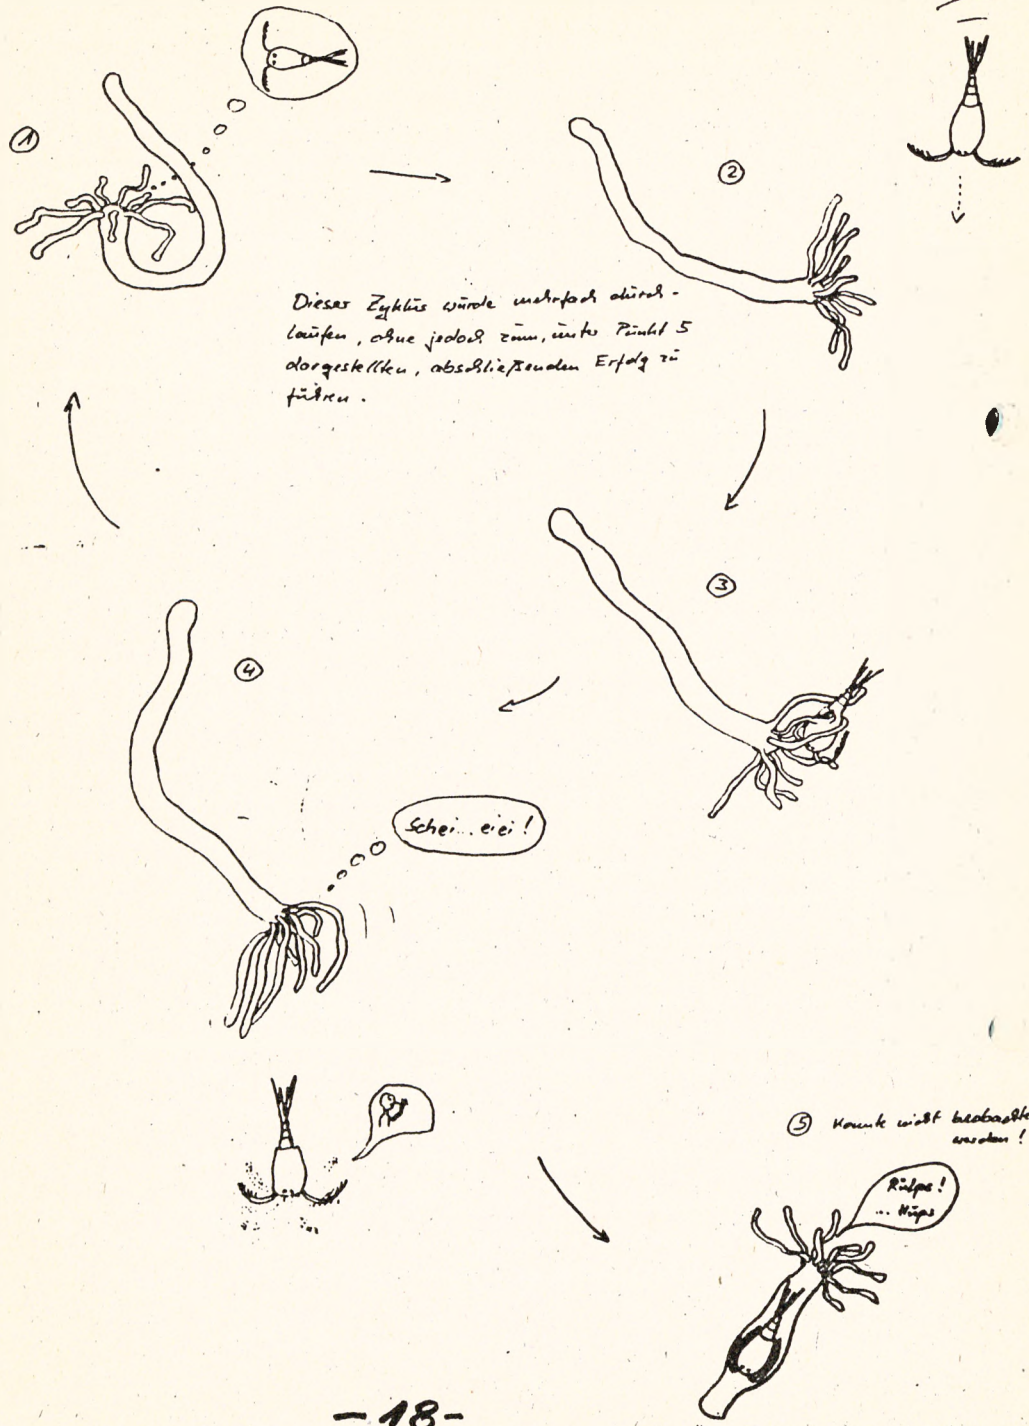 ①
②
Dieser Zyklus wurde mehrfach durch-
laufen, ohne jedoch zum, unter Punkt 5
dargestellten, abschließenden Erfolg zu
führen.
③
④
Schei...eiei!
⑤ Konnte nicht beobachte
werden!
Rülps!
... Hüps
-18-